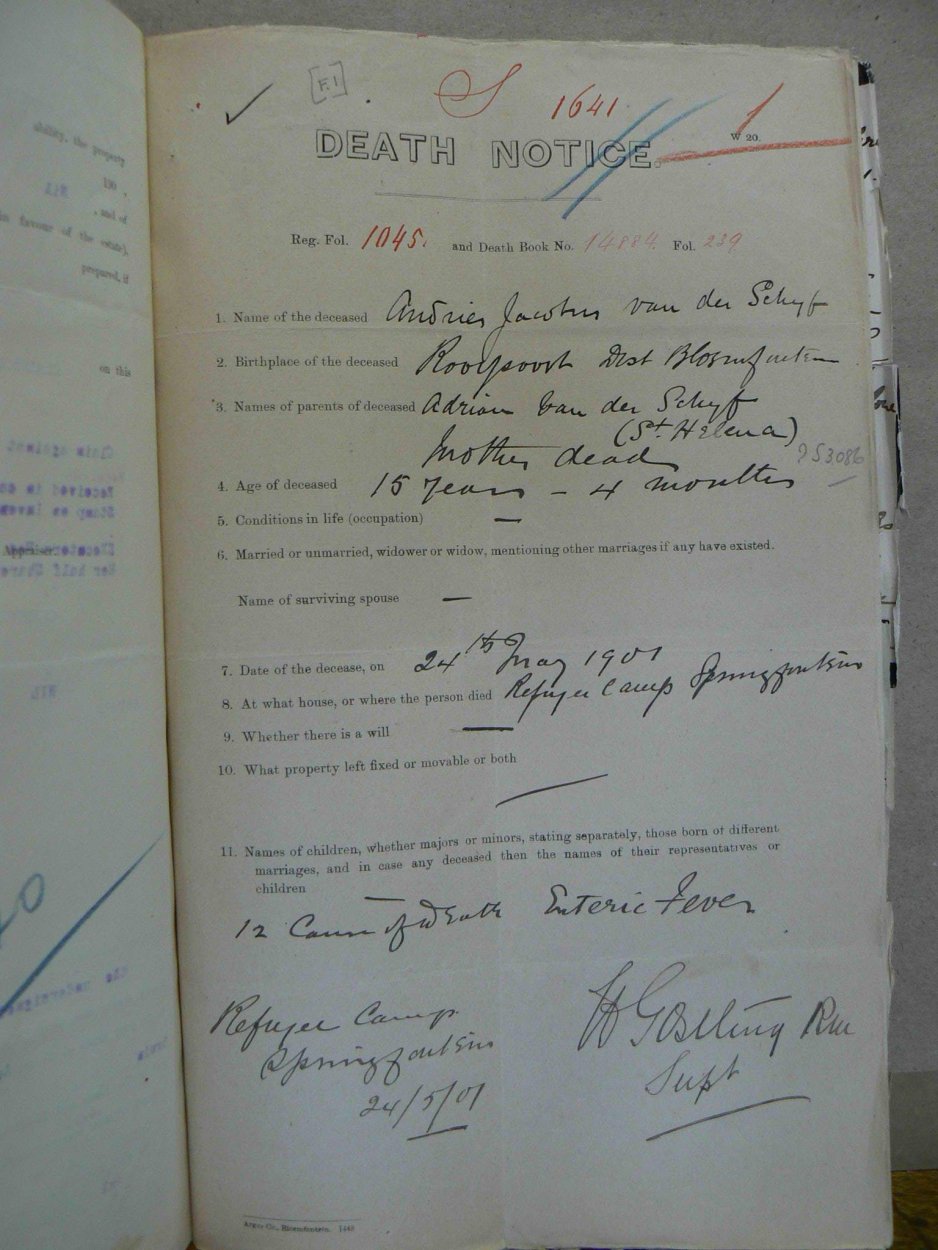 ability, the property
190 .
Nil
, and of
in favour of the estate),
prepared, if
on this
Claim against
Received in
F.1
S 1641
1
W 20.
DEATH NOTICE.
Reg. Fol. 1045. and Death Book No. 14884 Fol. 239
1. Name of the deceased Andries Jacobus van der Schyf
2. Birthplace of the deceased Rooipoort Dist Bloemfontein
3. Names of parents of deceased Adrian van der Schyf
(St Helena)
Mother dead
? S3086
4. Age of deceased 15 years - 4 months
5. Conditions in life (occupation) —
6. Married or unmarried, widower or widow, mentioning other marriages if any have existed.
Name of surviving spouse —
7. Date of the decease, on 24th May 1901
8. At what house, or where the person died Refugee Camp Springfontein
9. Whether there is a will —
10. What property left fixed or movable or both
—
11. Names of children, whether majors or minors, stating separately, those born of different
marriages, and in case any deceased then the names of their representatives or
children —
12 Cause of Death Enteric Fever
Refugee Camp
Springfontein
24/5/01
H Gostling
Supt
Argus Co., Bloemfontein. 1448